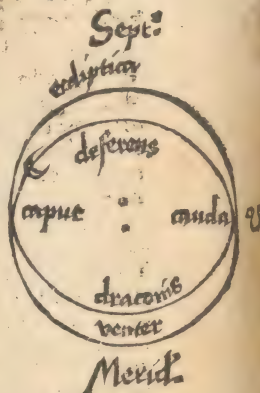 Sept:
ecliptica
deferens
caput cauda
draconis
venter
Merid.